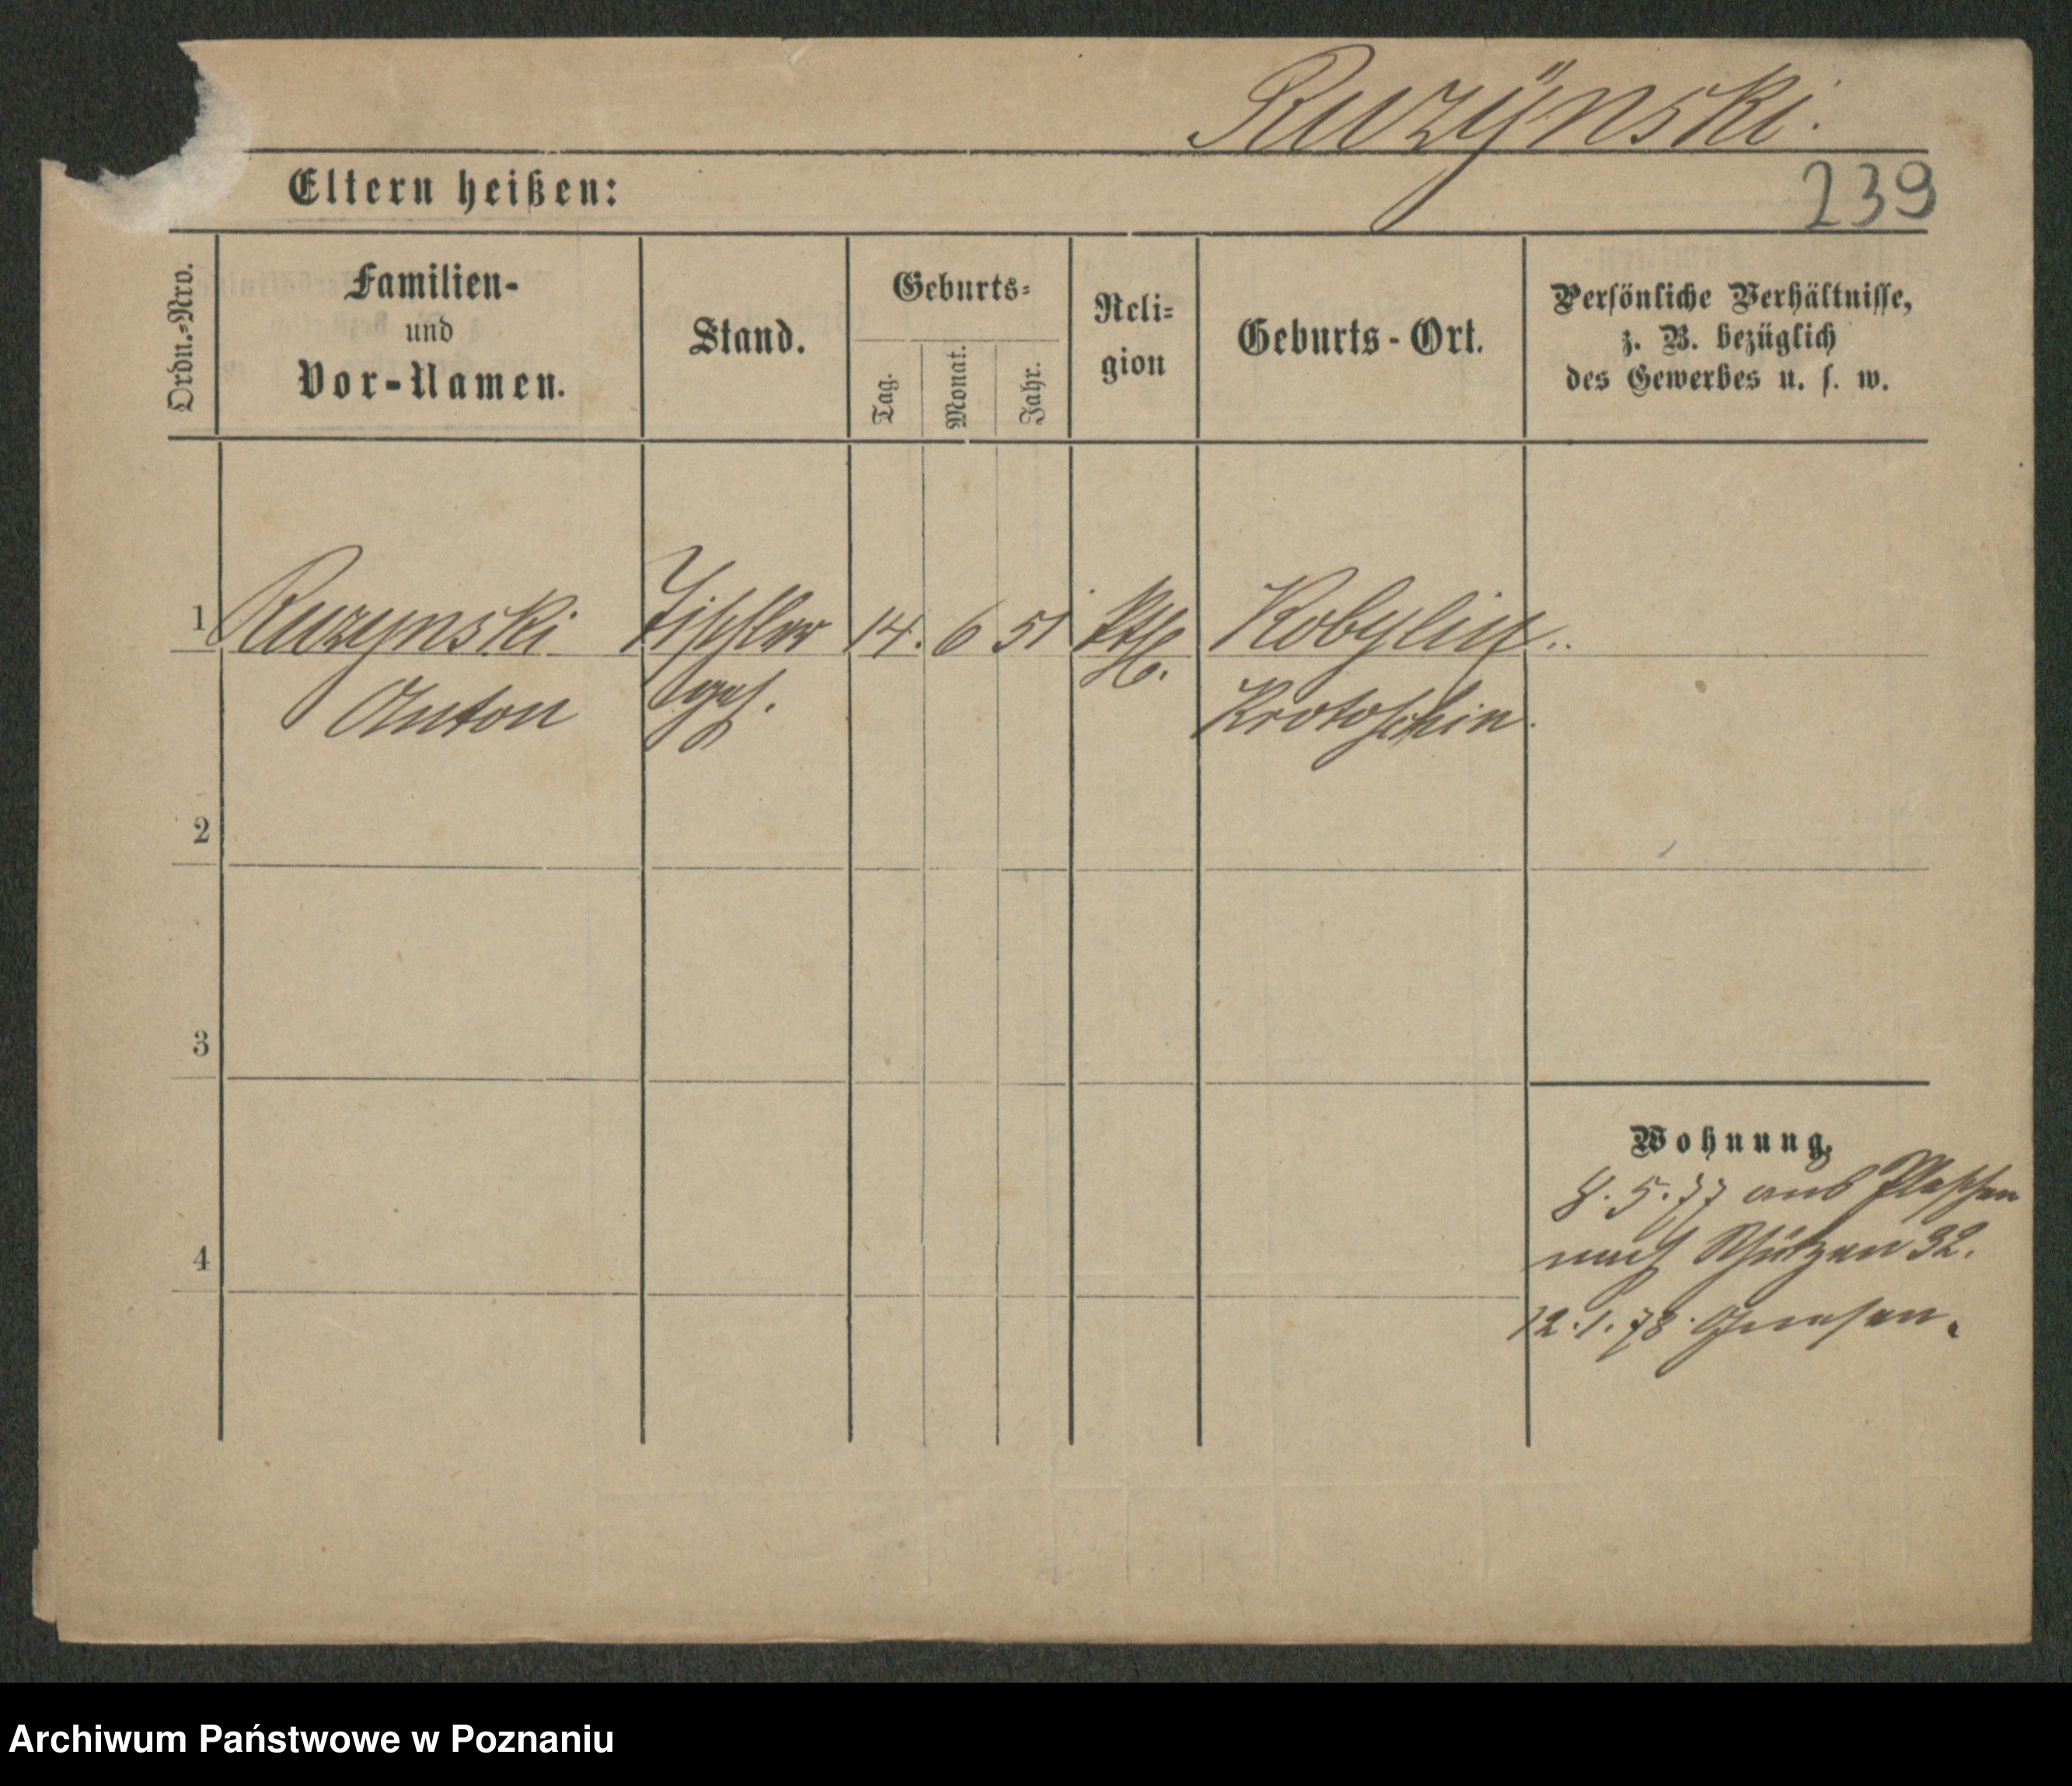 Ruzÿnski.
Eltern heißen:
239
Ordn.=Nro.
Familien-
und
Vor-Namen.
Stand.
Geburts=
Tag.
Monat.
Jahr.
Reli=
gion
Geburts-Ort.
Persönliche Verhältnisse,
z. B. bezüglich
des Gewerbes u. s. w.
1 Ruzynski Tischler 14. 6 51 Kobylin
Anton ges. Krotoschin.
2
3
4
Wohnung.
8. 5. 77 aus Pleschen
nach Schützen 32.
12. 1. 78. Gnesen.
Archiwum Państwowe w Poznaniu